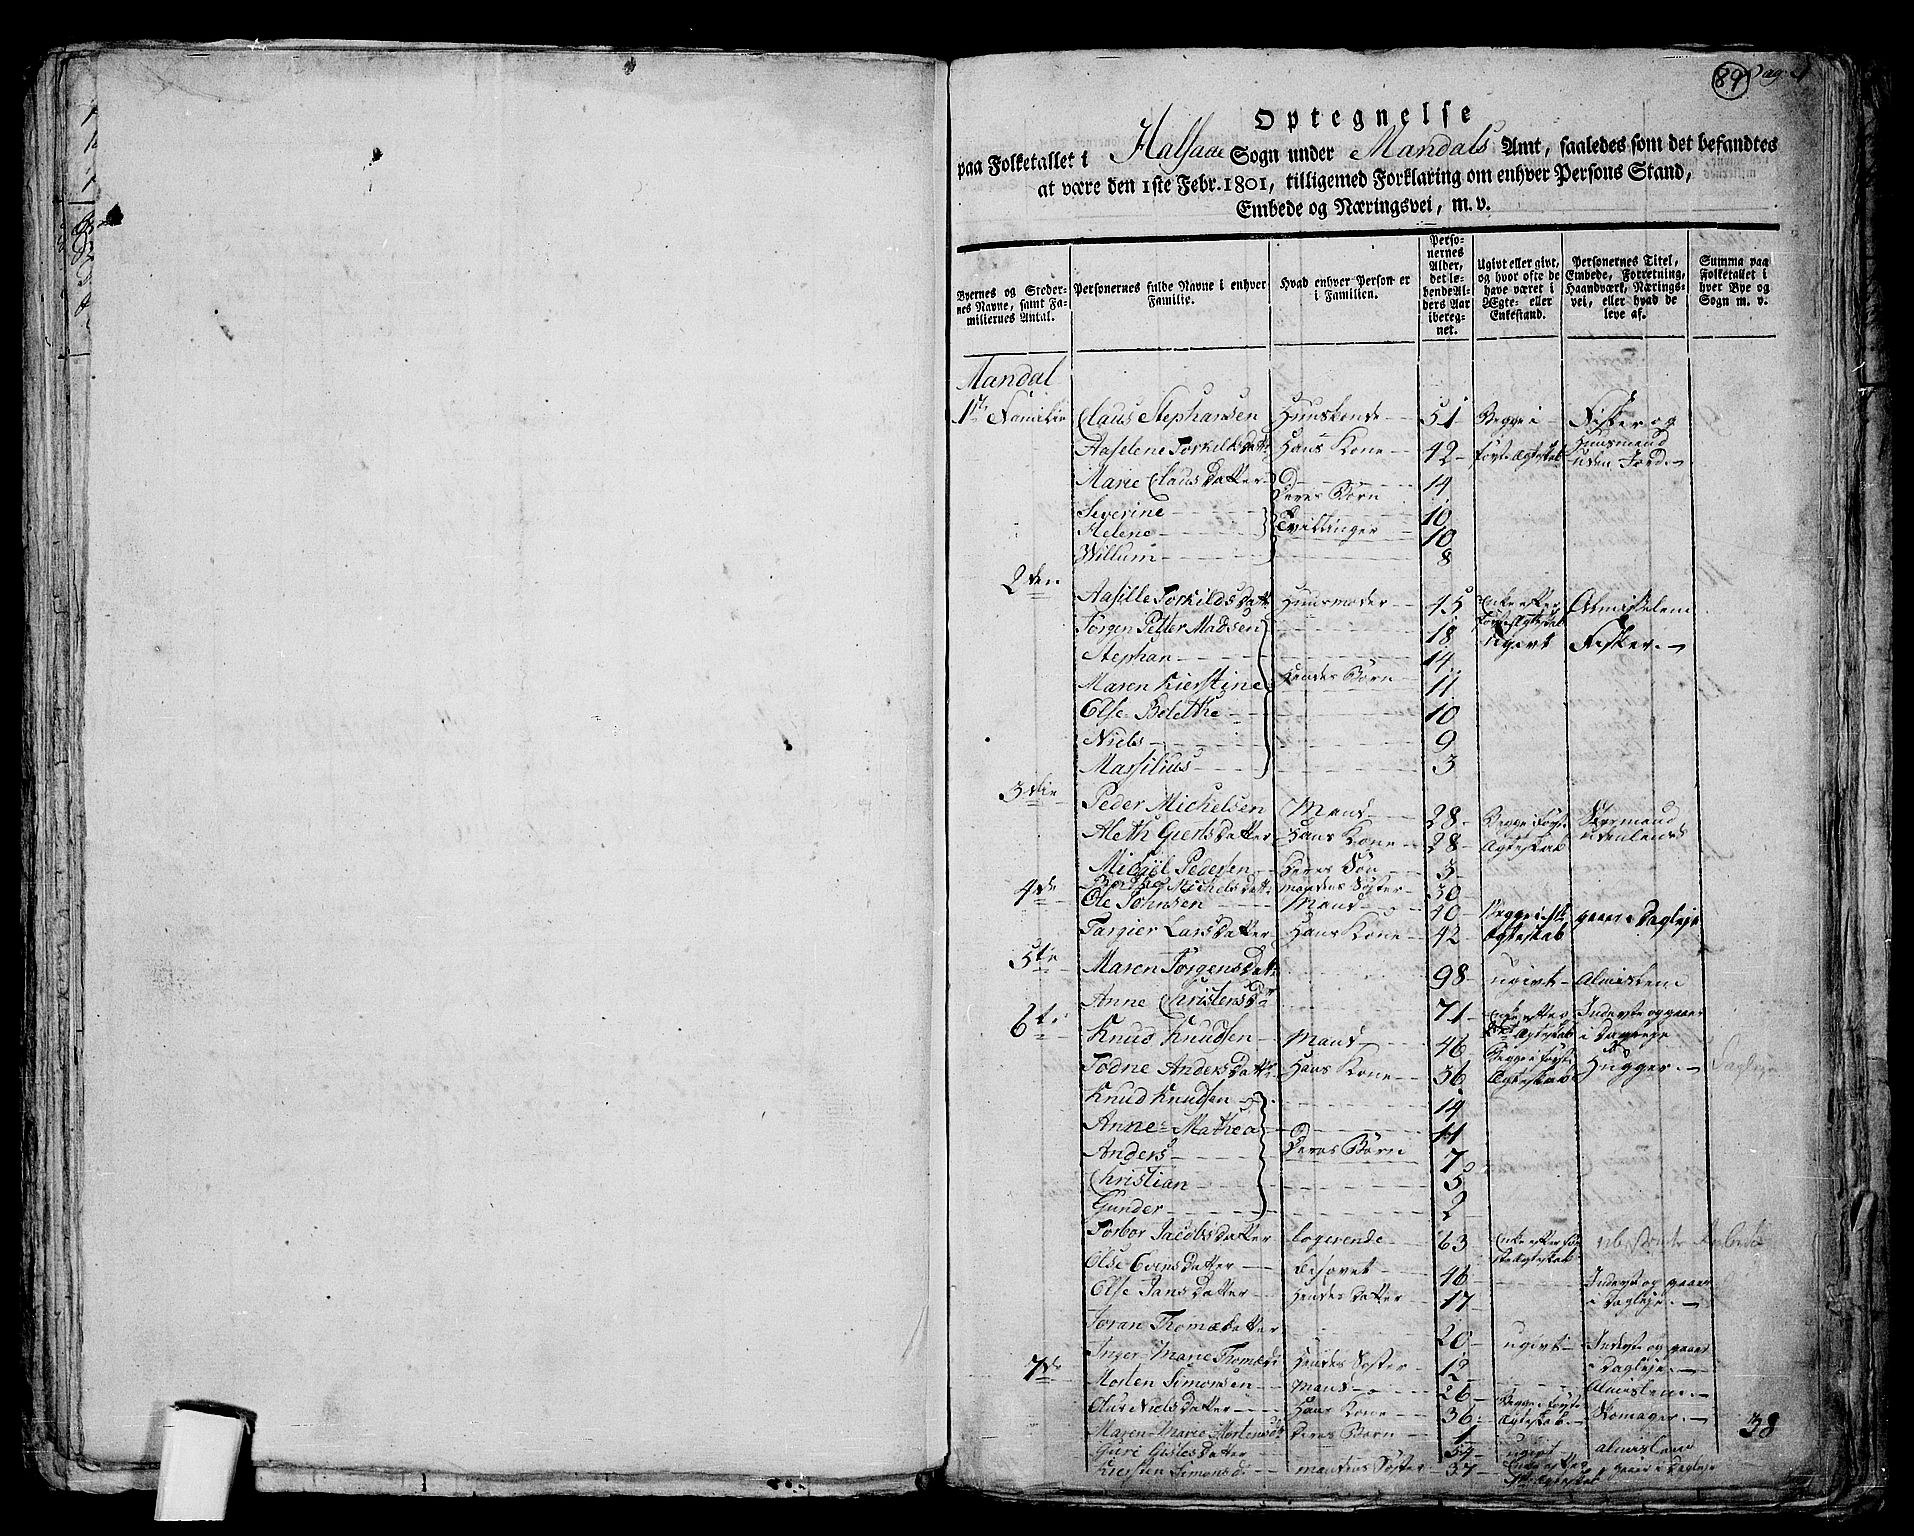 89 Pag. 1
Optegnelse
paa Folketallet i Halsaae Sogn under Mandals Amt, saaledes som det befandtes
at være den 1ste Febr. 1801, tilligemed Forklaring om enhver Persons Stand,
Embede og Næringsvei, m. v.
Byernes og Stedernes Navne, samt Familiernes Antal. Personernes fulde Navne i enhver Familie. Hvad enhver Person er i Familien. Personernes Alder, det løbende Alders Aar iberegnet. Ugivt eller givt, og hvor ofte de have været i Ægte- eller Enkestand. Personernes Titel, Embede, Forretning, Haandværk, Næringsvei, eller hvad de leve af. Summa paa Folketallet i hver Bye og Sogn m. v.
Mandal
1te Familie Claus Stephansen Huusbonde 51 Begge i Fisker og
Aaselene Torkildsdatt Hans Kone 42 første Ægteskab Huusmand uden Jord
Marie Clausdatter Deres Børn 14
Severine 10
Helene Tvillinger 10
Willum 8
2den
Aasille Torkildsdatt Huusmoder 45 Enke efter første Ægteskab Almisselem
Jørgen Petter Madsen 18 ugivt Fisker
Stephan 14
Maren Kierstine Hendes Børn 11
Else Bolethe 10
Niels 9
Massilius 3
3die
Peder Michelsen Mand 28 Begge i første Styrmand
Aleth Giertsdatter Hans Kone 28 Ægteskab udenlands
Michael Pedersen Deres Søn 3
Michelsdatt mandens Søster 30
4de Ole Johnsen Mand 40 Begge i 1ste gaaer i Dagleje
Targier Larsdatter Hans Kone 42 Ægteskab
5te
Maren Jørgensdatt 98 ugivt Almislem
Anne Christensdr 71 Enke efter første Ægteskab Inderste og gaaer i Dagleje
6te Knud Knudsen Mand 46 Begge i første
Todne Andersdatt Hans Kone 36 Ægteskab Hugger Dagleje
Knud Knudsen 14
Anne Mathea 11
Anders Deres Børn 7
Christian 5
Gunder 2
Torbor Jacobsdatter logerende 63 Enke efter første Ægteskab
Olse Evensdatter besovet 46
Else Jansdatter Hendes datter 17 Inderste og gaaer i Dagleje
Joran Thomædatter 20 ugivt Inderste og gaaer
Inger Marie Thomæd Hendes Søster 12 i Dagleje
7de
Morten Simonsen Mand 26 Begge i første Almislem
Nielsdatter Hans Kone 36 Ægteskab Skomager
Maren Marie Mortensdt Deres Barn 1
Guri Gislesdatter 54 ugivt almislem
Kiersten Simonsd mandens Søster 37 Enke efter gaaer i Dagleje
38